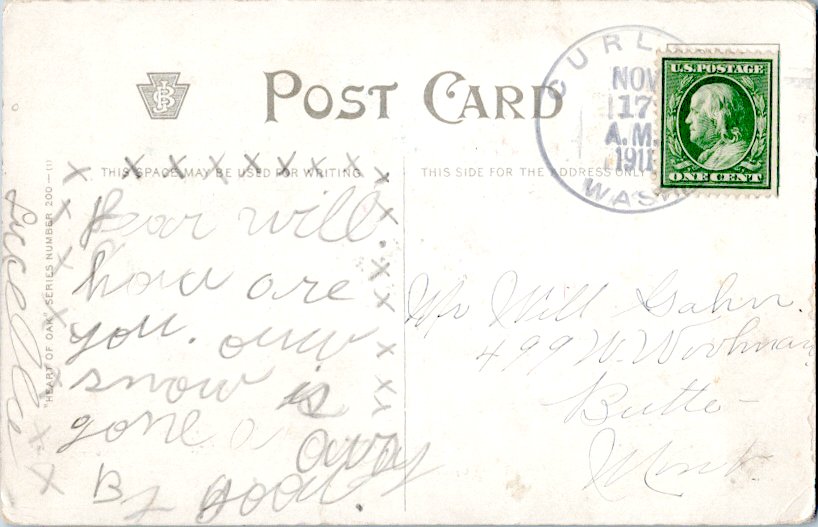 POST CARD
CURL
NOV
17
A.M.
1911
WASH
U.S. POSTAGE
ONE CENT
THIS SPACE MAY BE USED FOR WRITING
THIS SIDE FOR THE ADDRESS ONLY
"HEART OF OAK" SERIES NUMBER 200-III
x x x x x x x x
Dear will.
how are
you. ouer
snow is
gone a away
By good.
Mr Will Gahn.
499 W. Woolman
Butte
Mont.